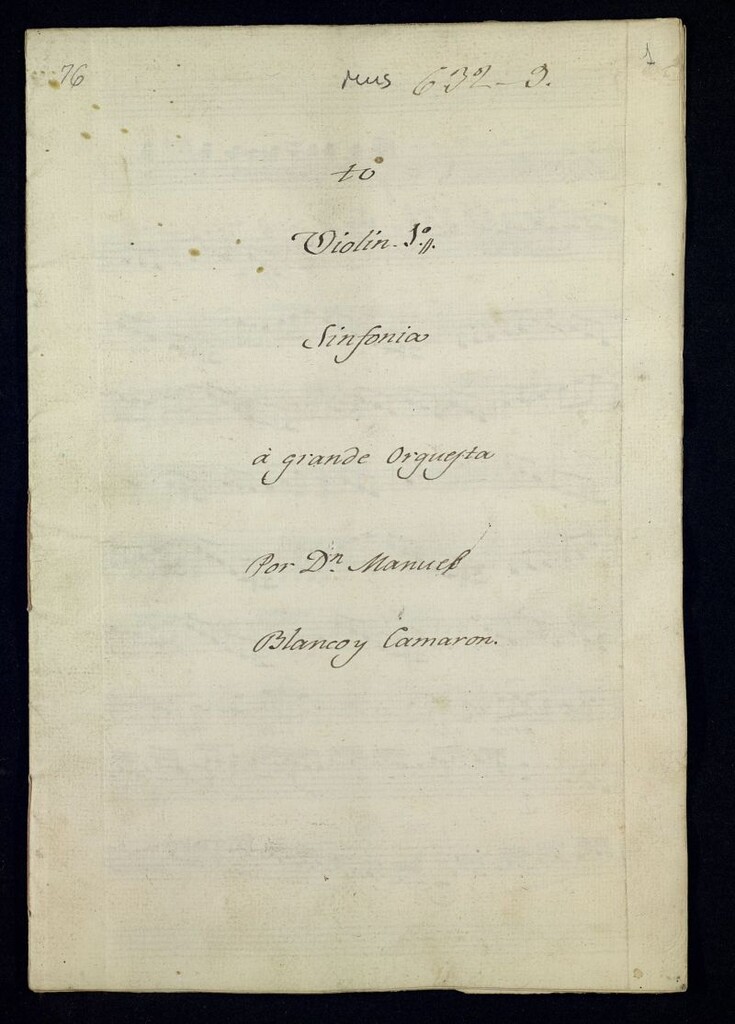 76
Mus 632-9.
1
to
Violin. 1º.
Sinfonia
à grande Orquesta
Por Dn. Manuel
Blanco y Camaron.